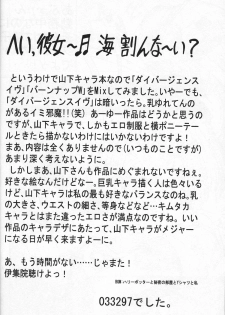 へい、彼女〜♬ 海 割んな〜い?
というわけで山下キャラ本なので「ダイバージェンス
イヴ」「バーンナップW」をMixしてみました。いやーでも、
「ダイバージェンスイヴ」は暗いったら。乳ゆれてんの
があるイミ邪魔!!(笑) あーゆー作品はどうかと思うの
ですが、山下キャラで、しかもエロ制服と横ポニーテー
ルときたら描かないわけにはいかないでありますか?
ま、内容は全くありませんので(いつものことですが)
あまり深く考えないように。
しかしまぁ、山下さんも作品にめぐまれないですねぇ。
好きな絵なんだけどなー。巨乳キャラ描く人は色々いる
けど、山下キャラは私の最も好きなバランスなのね。乳
の大きさ、ウエストの細さ、等身などなど…キムタカ
キャラとはまた違ったエロさが満点なのですし。いい
作品のキャラデザにあたって、山下キャラがメジャー
になる日が早く来ますよーに。
あ、もう時間がない……じゃまた!
伊集院聴けよっ!
033297でした。